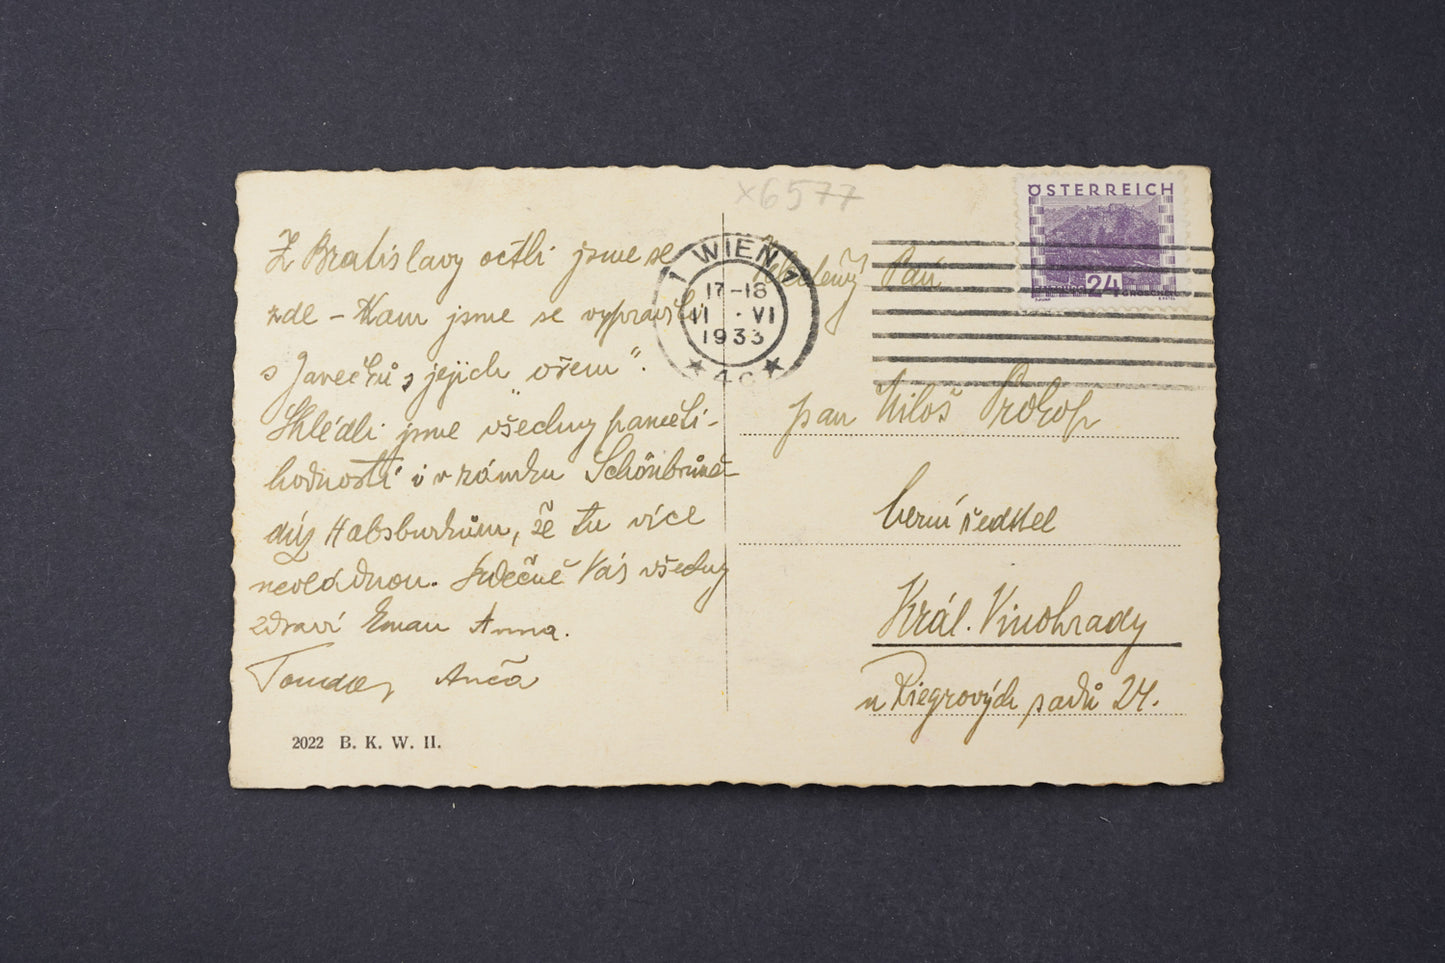 x6577
ÖSTERREICH
24 GROSCHEN
1 WIEN 1
17-18
11 · VI
1933
★ 4c ★
Z Bratislavy octli jsme se
zde – Kam jsme se vypravili
s Javečků s jejich „ořem“.
Shlédli jsme všechny pameti-
hodnosti i v zámku Schönbrůně
díky Habsburkům, že tu více
nevládnou. Srdečně Vás všechny
zdraví Eman Anna.
Anča
2022 B. K. W. II.
Velectěný Pán
pan Miloš Prokop
berní ředitel
Král. Vinohrady
u Riegrových sadů 24.